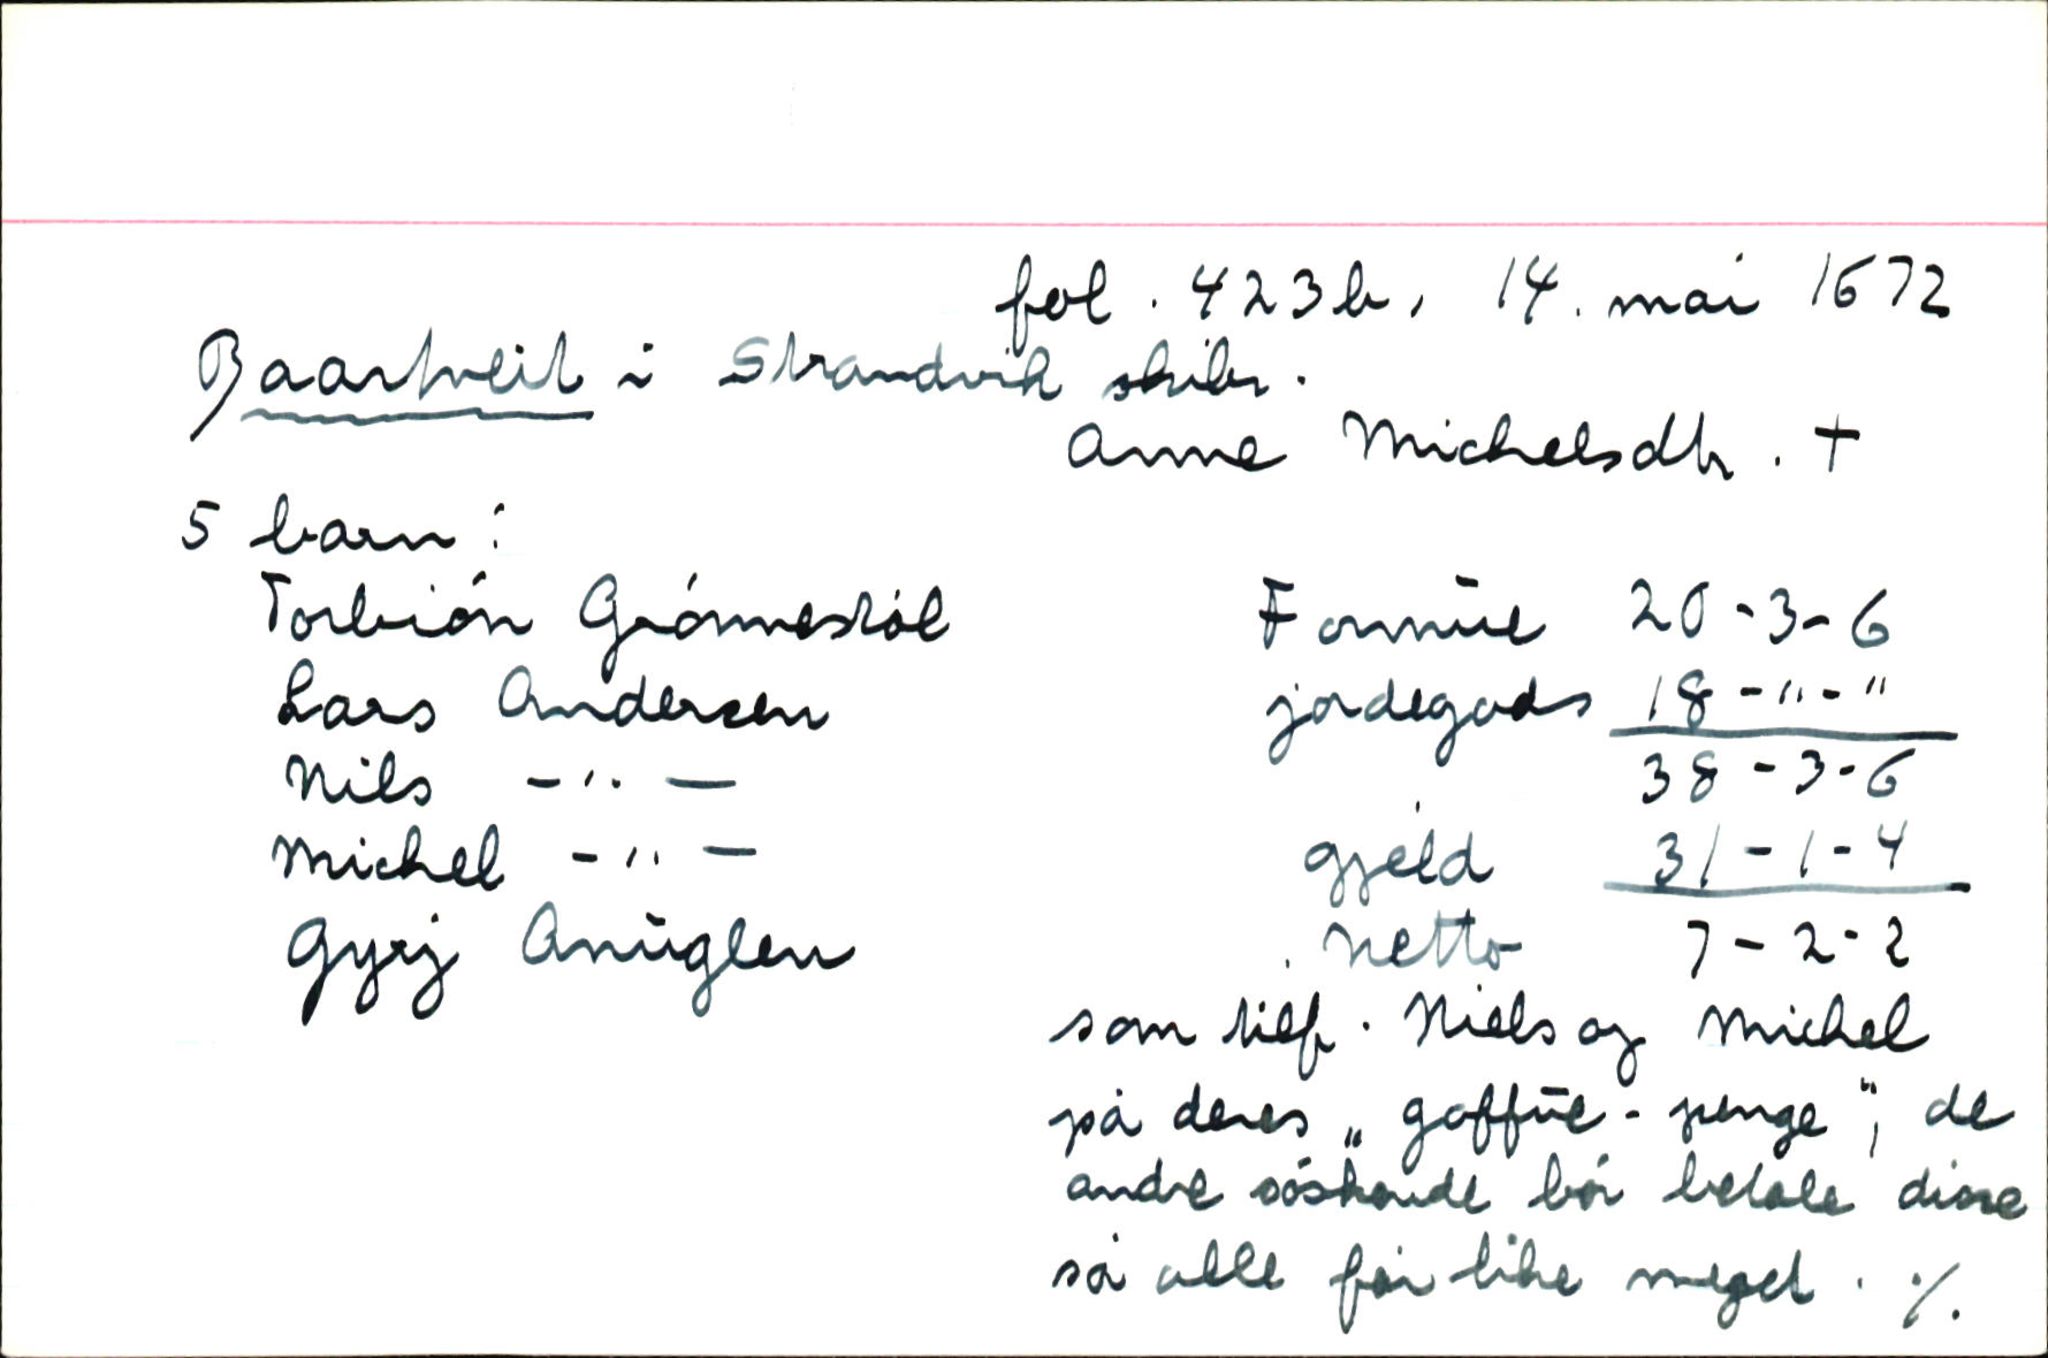 fol. 423b, 14. mai 1672
Baartveit i Strandvik skibr.
Anne Michelsdtr. †
5 barn:
Torbión Griónnestól Formūe 20-3-6
Lars Andersen jordegods 18-"-"
38-3-6
Nils -"-
Michel -"- gjeld 31-1-4
Gyrj Anūglen Netto 7-2-2
som tilf. Niels og Michel
på deres „gaffūe-penge", de
andre sóskende bór betale disse
så alle får like meget. ./.